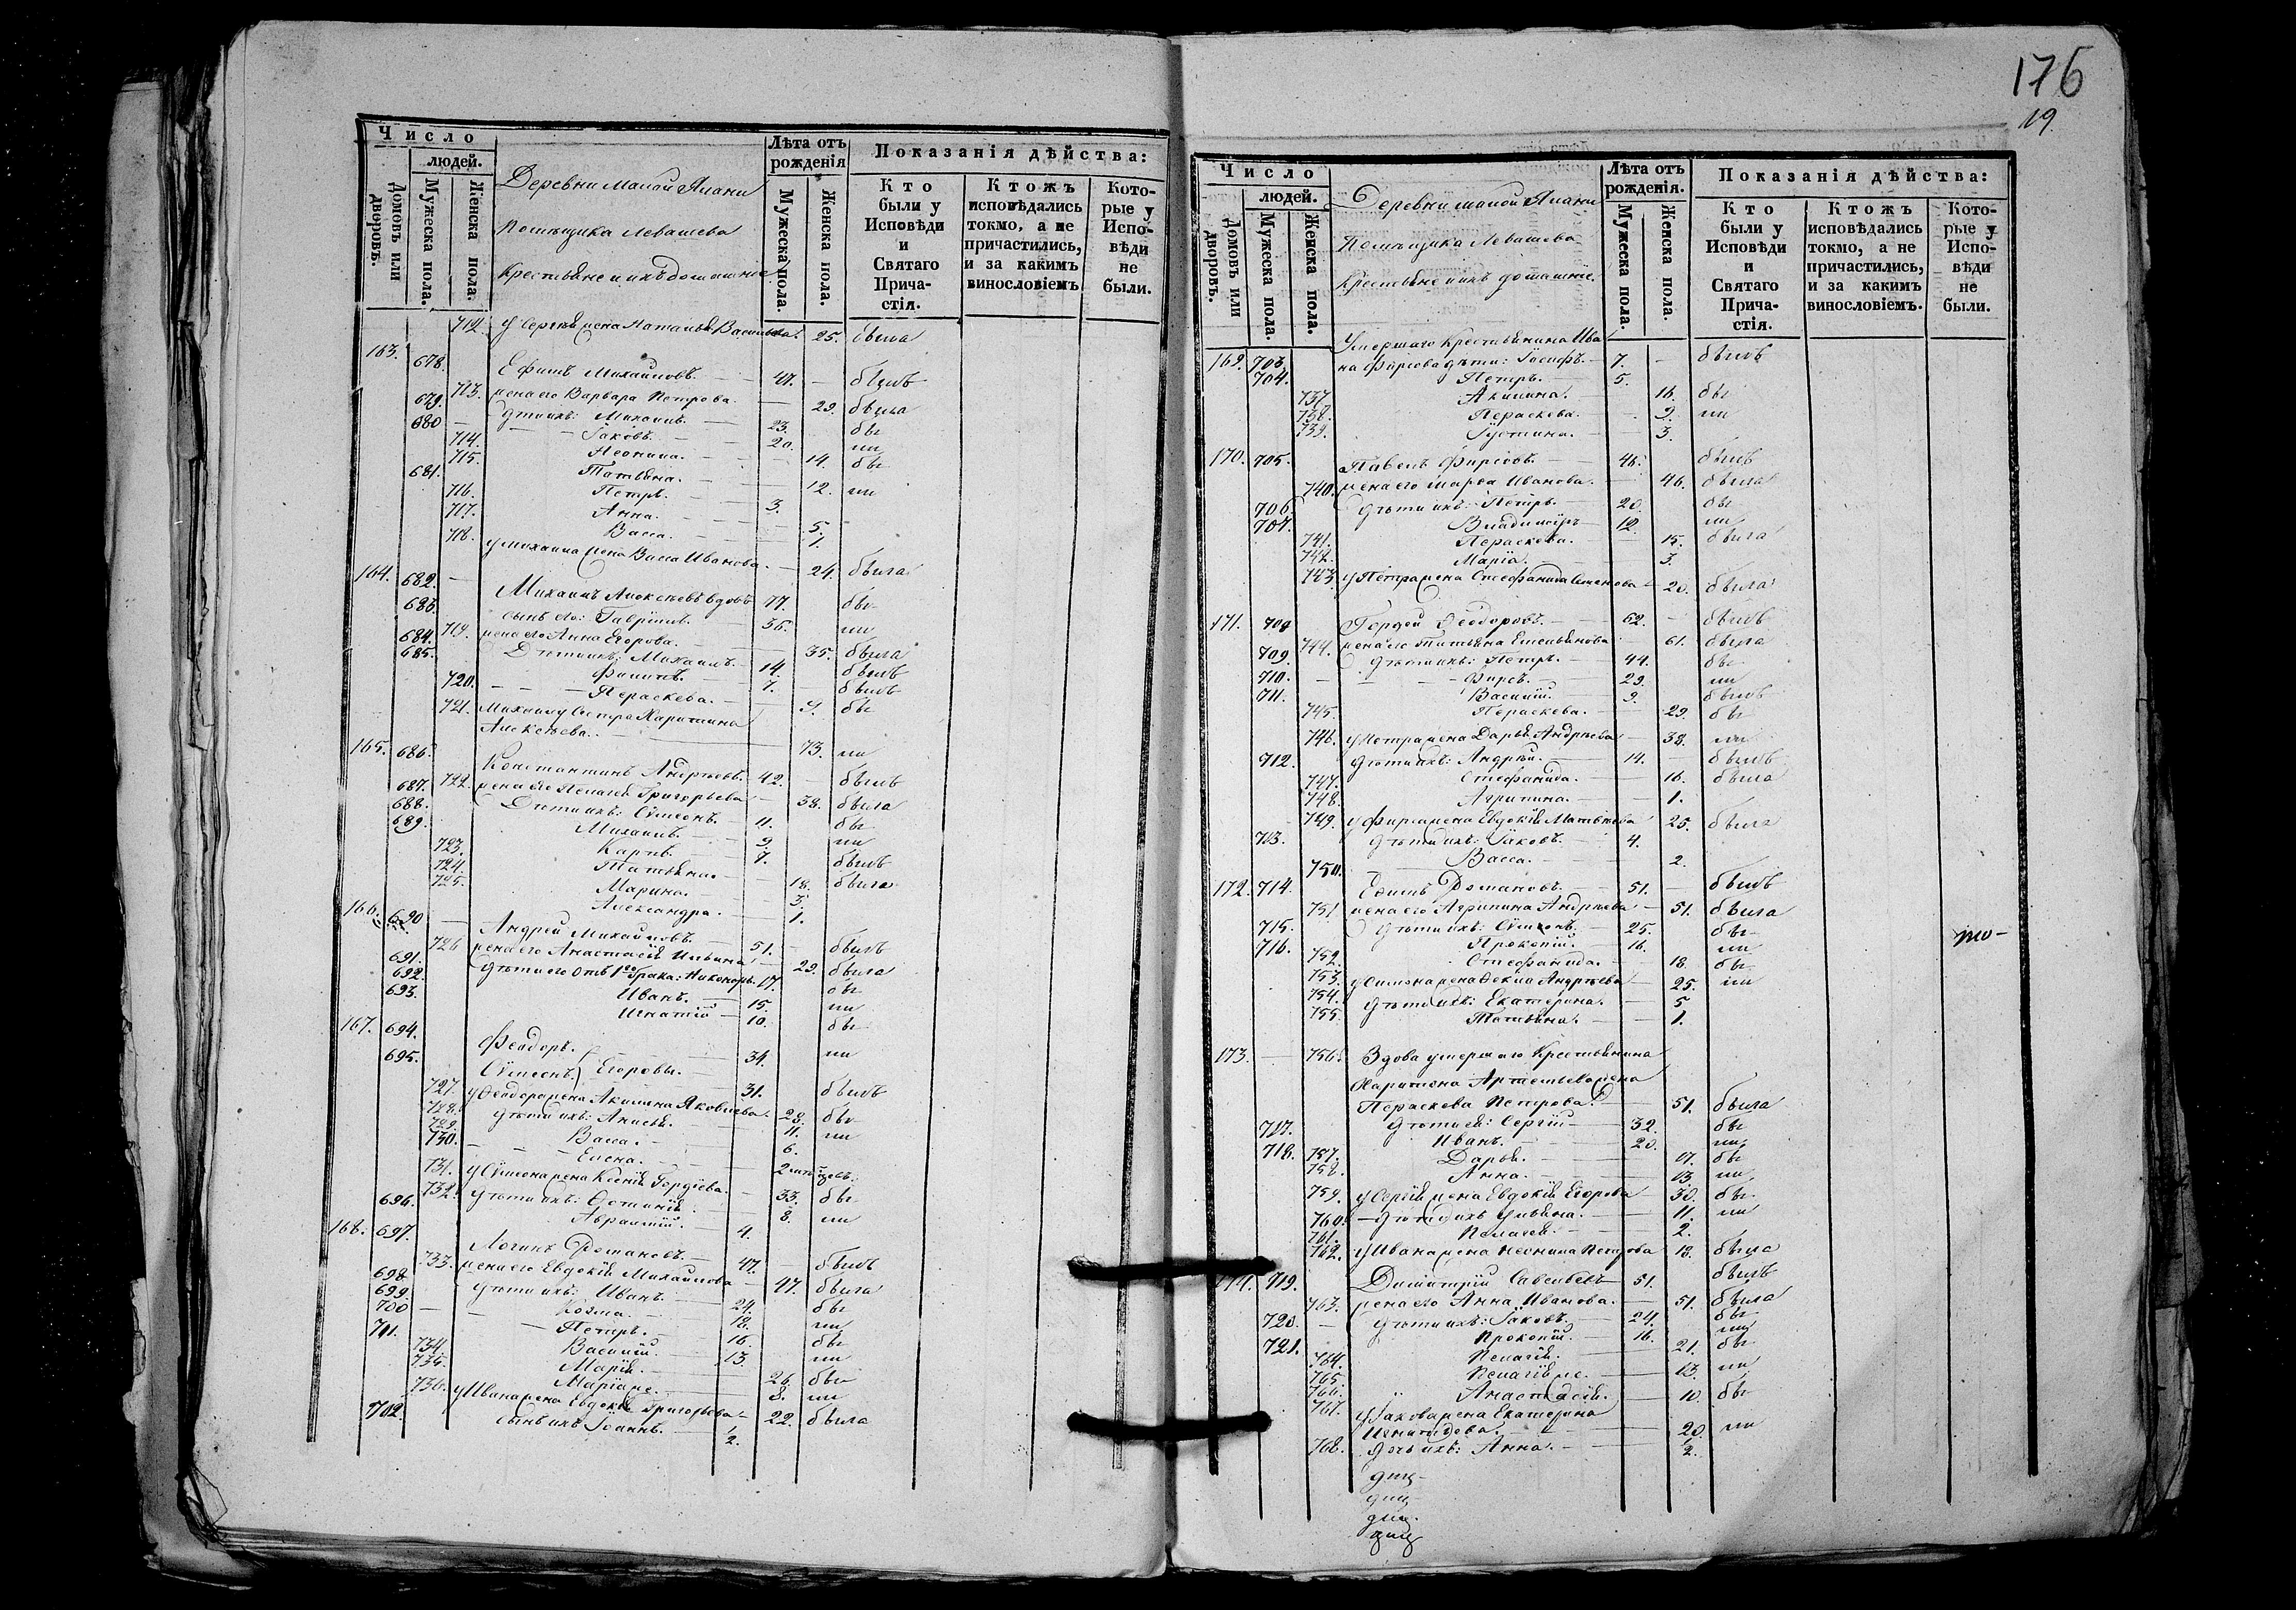 176
19.
Число
людей.
Домовъ или дворовъ.
Мужеска пола.
Женска пола.
Деревни Малой Яланы
Помѣщика Левашева
Крестьяне и ихъ домашніе
Лѣта отъ рожденія
Мужеска пола.
Женска пола.
Показанія дѣйства:
Кто были у Исповѣди и Святаго Причастія.
Ктожъ исповѣдались токмо, а не причастились, и за какимъ винословіемъ.
Которые у Исповѣди не были.
712. у Сергѣя жена Наталья Васильева. 25. была
163. 678. Ефимъ Михайловъ. 47. былъ
713. жена его Варвара Петрова. 29. была
679. дѣти ихъ: Михаилъ. 23. бы
680 Іаковъ. 20. ли
714. Неонила. 14. бы
715. Татьяна. 12. ли
681. Петръ. 3.
716. Анна. 5.
717. Васса. 1.
718. у Михаила жена Васса Иванова. 24. была
164. 682. Михаилъ Алексѣевъ вдовъ 77. бы
683. сынъ его: Гавріилъ. 36. ли
719. жена его Анна Егорова. 35. была
684. Дѣти ихъ: Михаилъ. 14. былъ
685. Филипъ. 7. былъ
720. Пераскева. 9. бы
721. Михаилу сестра Харитина
Алексѣева. 73. ли
165. 686. Константинъ Андреевъ. 42. былъ
722. жена его Пелагея Григорьева 38. была
687. Дѣти ихъ: Сѵмеонъ. 11. бы
688. Михаилъ. 9. ли
689. Карпъ. 7. былъ
723. Татьяна. 18. была
724. Марина. 3.
725. Александра. 1.
166. 690 Андрей Михайловъ. 51. былъ
726 жена его Анастасія Ильина 29. была
691. дѣти его отъ 1го брака: Никоноръ. 17. бы
692. Иванъ. 15. ли
693. Игнатій 10. бы
167. 694. Феодоръ. 34. ли
695. Сѵмеонъ. } Егоровы. 31. былъ
727. у Феодора жена Акилина Яковлева. 28. бы
728. дѣти ихъ: Анисья. 11. ли
729. Васса. 6.
730. Елена. 2
731. у Сѵмеона жена Ксенія Гордіева. 33. бы
732. дѣти ихъ: 8. ли
696. Авраамій. 4.
168. 697. Логинъ Романовъ. 47. былъ
733. жена его Евдокія Михайлова 47. была
698. дѣти ихъ: Иванъ. 24. бы
699. Козма. 18. ли
700 Петръ. 16. бы
701. Василій. 13. ли
734. Марія. 26. бы
735. Марія же. 8. ли
736. у Ивана жена Евдокія Григорьева 22. была
702. сынъ ихъ Іоаннъ. 1/2.
Число
людей.
Домовъ или дворовъ.
Мужеска пола.
Женска пола.
Деревни малой Яланы
Помѣщика Левашева
Крестьяне и ихъ домашніе.
Лѣта отъ рожденія.
Мужеска пола.
Женска пола.
Показанія дѣйства:
Кто были у Исповѣди и Святаго Причастія.
Ктожъ исповѣдались токмо, а не причастились, и за какимъ винословіемъ.
Которые у Исповѣди не были.
Умершаго Крестьянина Ива
169. 703. на Фирсова дѣти: Іосифъ. 7. былъ
704. Петръ. 5.
737. Акилина. 16. бы
738. Пераскева. 9. ли
739. Іустина. 3.
170. 705. Павелъ Фирсовъ. 46. былъ
740. жена его Марѳа Иванова. 46. была
706. дѣти ихъ: Петръ. 20. бы
707. Владиміръ 12. ли
741. Пераскева. 15. была
742. Марія. 3.
743. у Петра жена Стефанида Семенова 20. была
171. 708 Гордей Феодоровъ. 62. былъ
744. жена его Татьяна Емельянова 61. была
709. дѣти ихъ: Петръ. 44. бы
710. Фирсъ. 29. ли
711. Василій. 9. былъ
745. Пераскева. 29. бы
746. у Петра жена Дарья Андреева 38. ли
712. дѣти ихъ: Андрей. 14. былъ
747. Стефанида. 16. была
748. Агрипина. 1.
749. у Фирса жена Евдокія Матвѣева 25. была
713. дѣти ихъ: Іаковъ. 4.
750. Васса. 2.
172. 714. Ефимъ Романовъ. 51. былъ
751 жена его Агрипина Андреева 51. была
715. дѣти ихъ: Сѵмеонъ. 25. бы
716. Прокопій. 16. ли
752. Стефанида. 18. бы
753. у Симеона жена Ѳекла Андреева 25. ли
754. дѣти ихъ: Екатерина. 5
755. Татьяна. 1.
173. 756. Вдова умершаго Крестьянина
Харитона Артемьева жена
Пераскева Петрова. 51. была
717. дѣти ея: Сергій 32. бы
718. Иванъ. 20. ли
757. Дарья. 17. бы
758. Анна. 13. ли
759. у Сергія жена Евдокія Егорова 30. бы
760. дѣти ихъ Ульяна. 11. ли
761. Пелагея. 2.
762. у Ивана жена Неонила Петрова 18. была
174. 719. Димитрій Савельевъ 51. былъ
763. жена его Анна Иванова. 51. была
720. дѣти ихъ: Іаковъ. 24. бы
721. Прокопій. 16. ли
764. Пелагія. 21. бы
765. Пелагія же. 13. ли
766. Анастасія. 10. бы
767. у Іакова жена Екатерина
Игнатьева. 20. ли
768. дочь ихъ: Анна. 1/2.